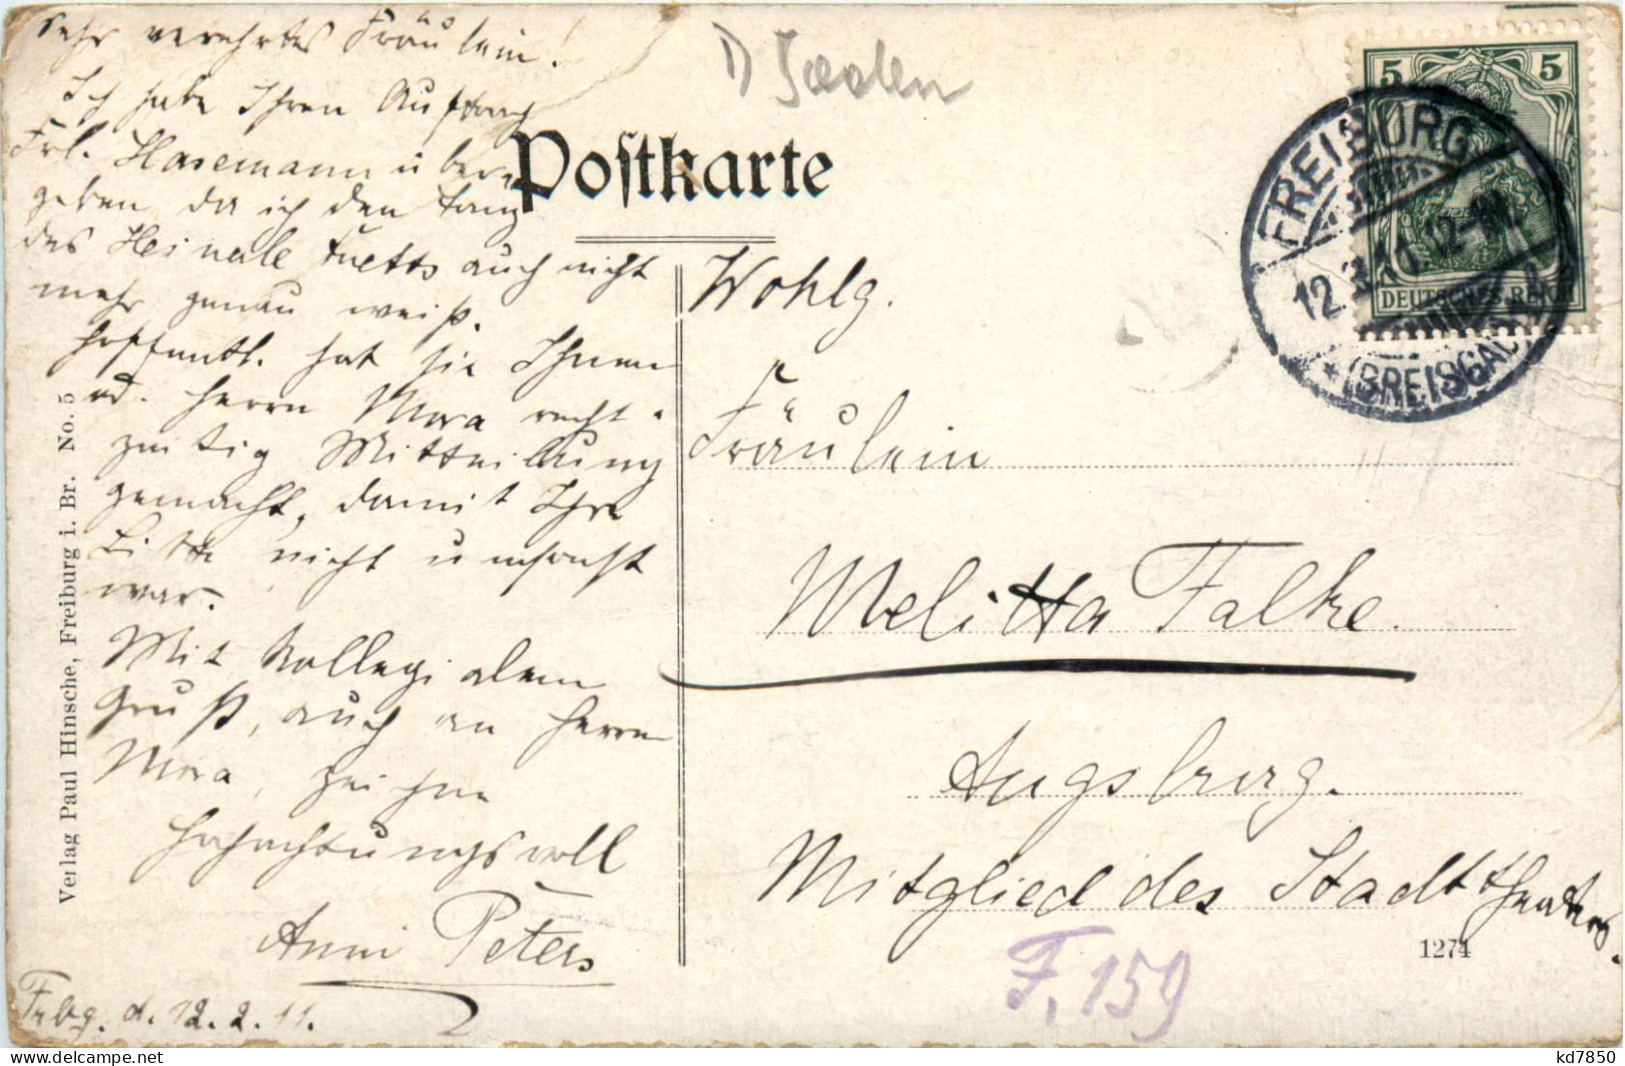 Sehr verehrtes Fräulein!
Ich habe Ihren Auftrag
Frl. Hasemann überge
geben, da ich den Tanz
des auch nicht
mehr genau weiß.
Hoffentl. hat sie Ihnen
od. Herrn Mora recht-
zeitig Mitteilung
gemacht, damit Ihre
Bitte nicht umsonst
war.
Mit kollegialem
Gruß, auch an Herrn
Mora, zeichne
hochachtungsvoll
Anni Peters
Frbg. d. 12.2.11.
Verlag Paul Hinsche, Freiburg i. Br. No. 5
D Baden
Postkarte
5 5
DEUTSCHES REICH
FREIBURG
12.3.11.12-
* (BREISGAU)
Wohlg.
Fräulein
Melitta Falke.
Augsburg.
Mitglied des Stadttheaters.
1274
F. 159
kd7850